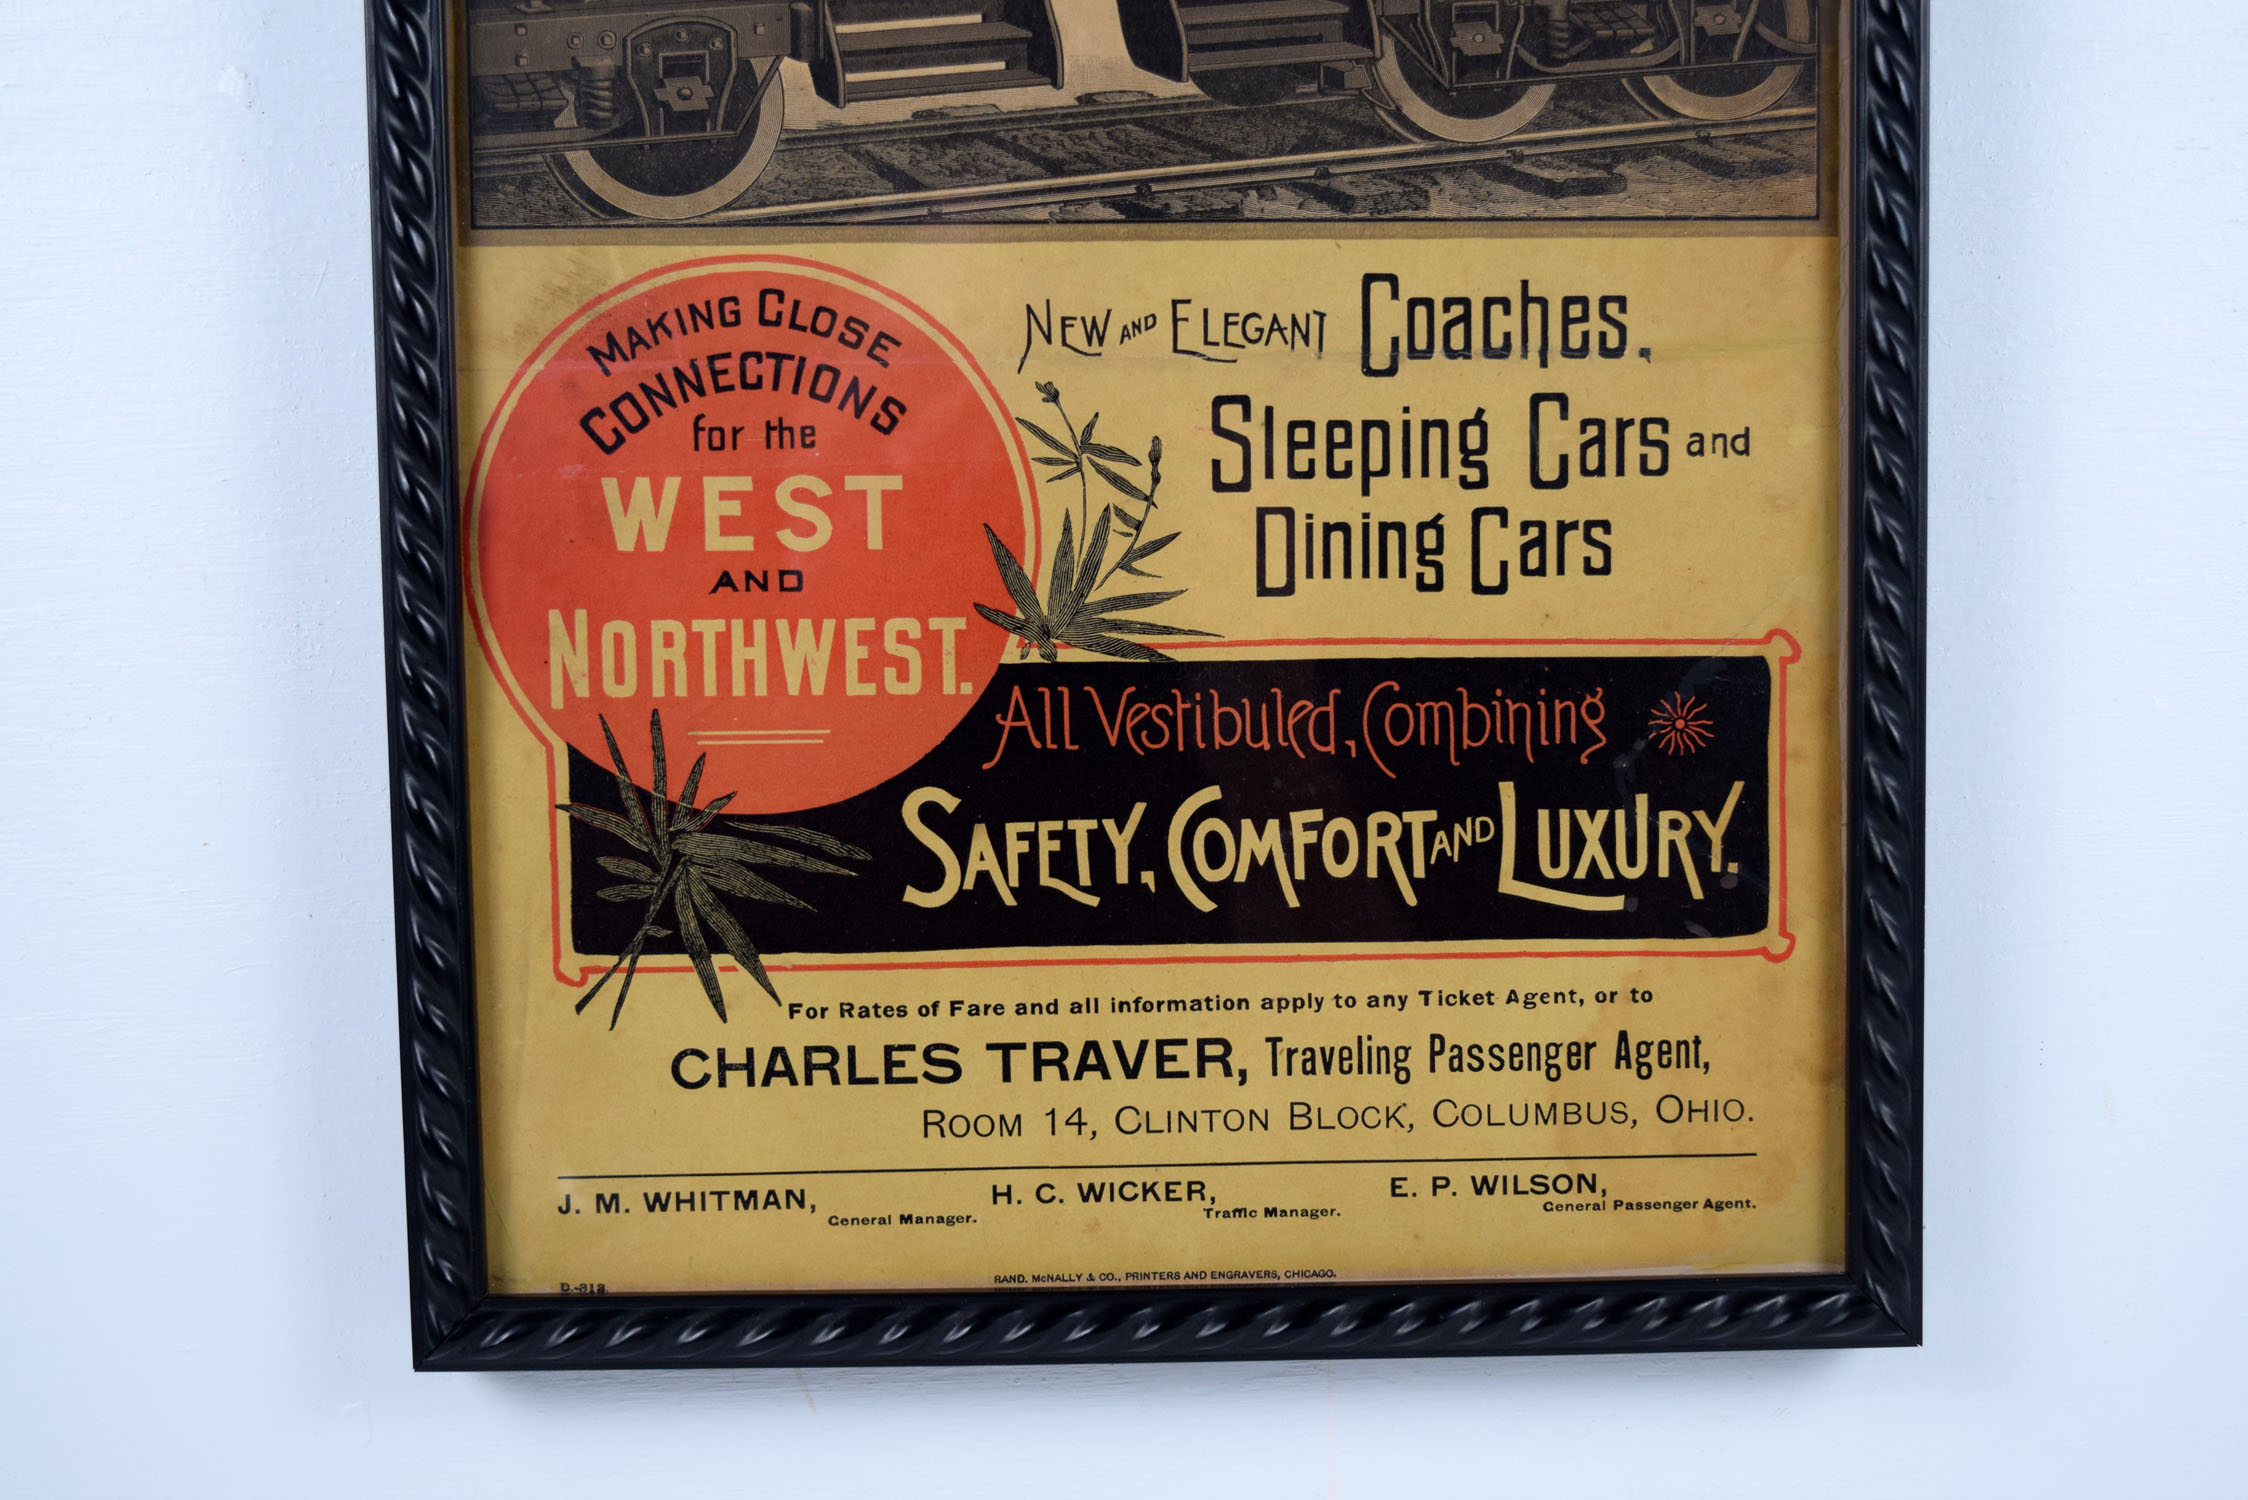 MAKING CLOSE
CONNECTIONS
for the
WEST
AND
NORTHWEST.
NEW AND ELEGANT Coaches,
Sleeping Cars and
Dining Cars
All Vestibuled, Combining
SAFETY, COMFORT AND LUXURY.
For Rates of Fare and all information apply to any Ticket Agent, or to
CHARLES TRAVER, Traveling Passenger Agent,
ROOM 14, CLINTON BLOCK, COLUMBUS, OHIO.
J. M. WHITMAN, General Manager.
H. C. WICKER, Traffic Manager.
E. P. WILSON, General Passenger Agent.
RAND, McNALLY & CO., PRINTERS AND ENGRAVERS, CHICAGO.